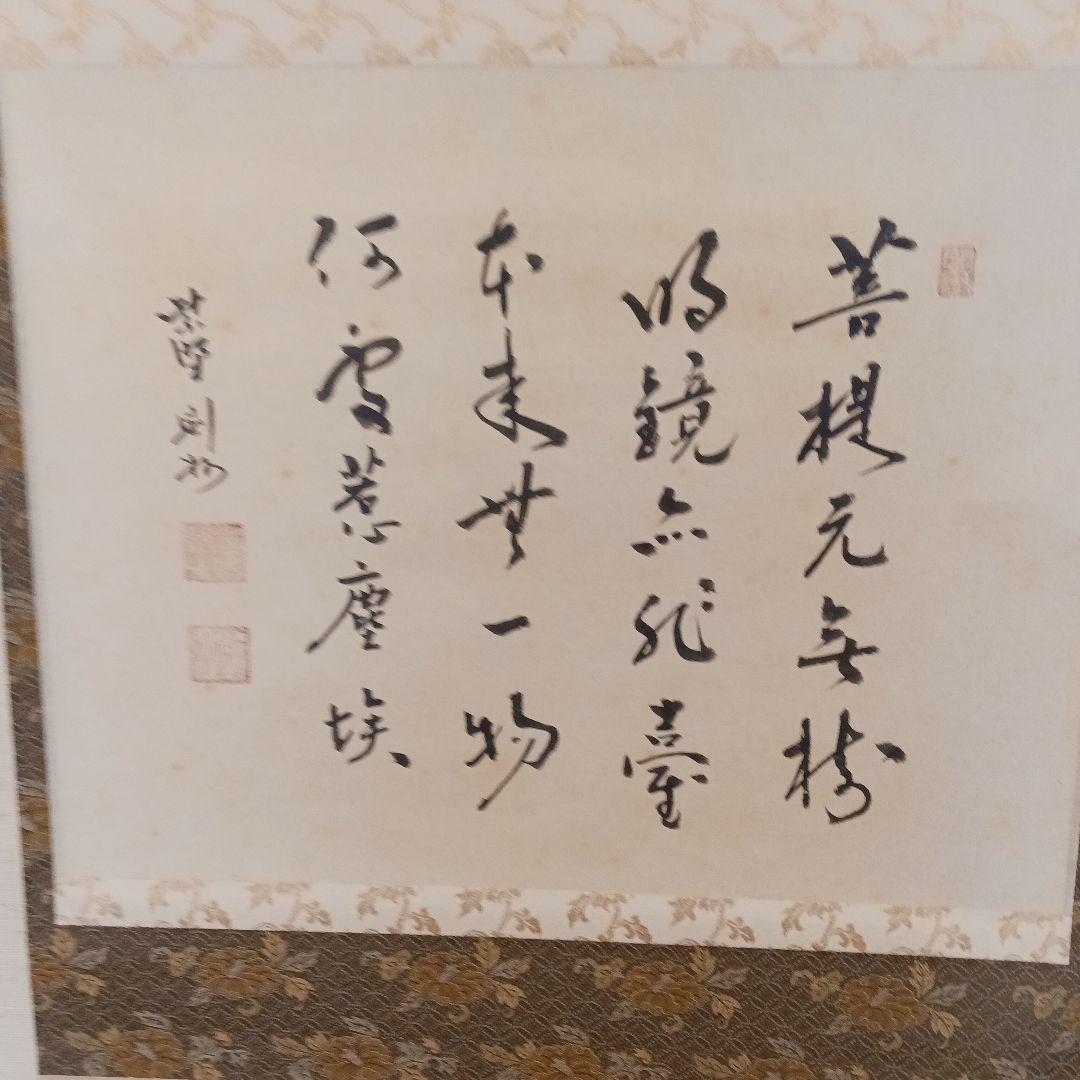 菩提元無樹
明鏡亦非臺
本来無一物
何處惹塵埃